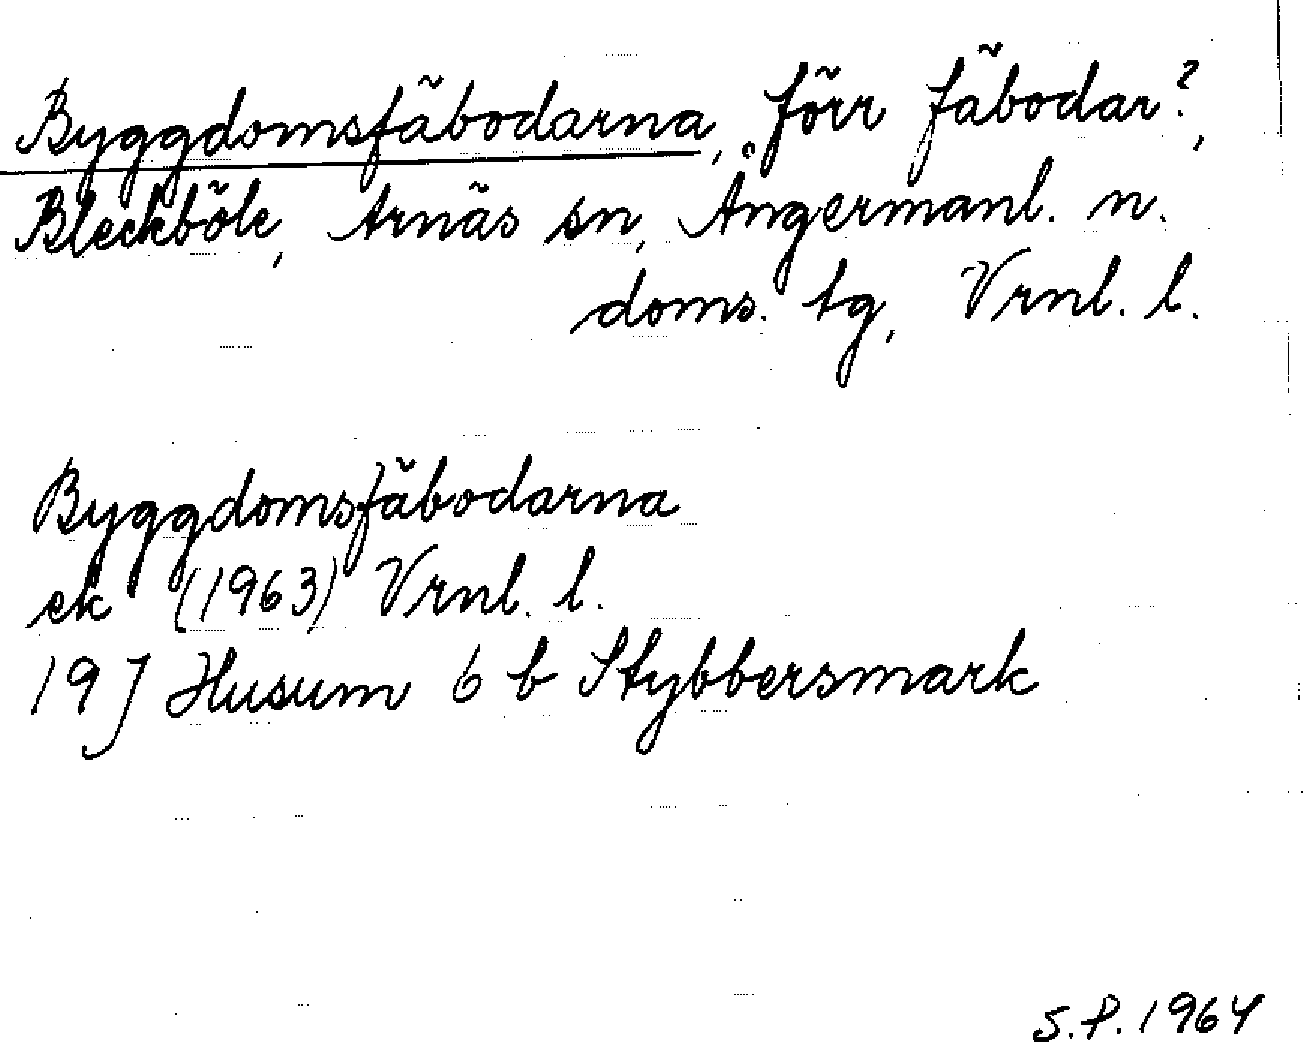 Byggdomsfäbodarna, förr fäbodar?,
Bleckböle, Arnäs sn, Ångermanl. n.
doms. tg, Vrnl. l.
Byggdomsfäbodarna
ek (1963) Vrnl. l.
19 J Husum 6 b Stybbersmark
S.P. 1964